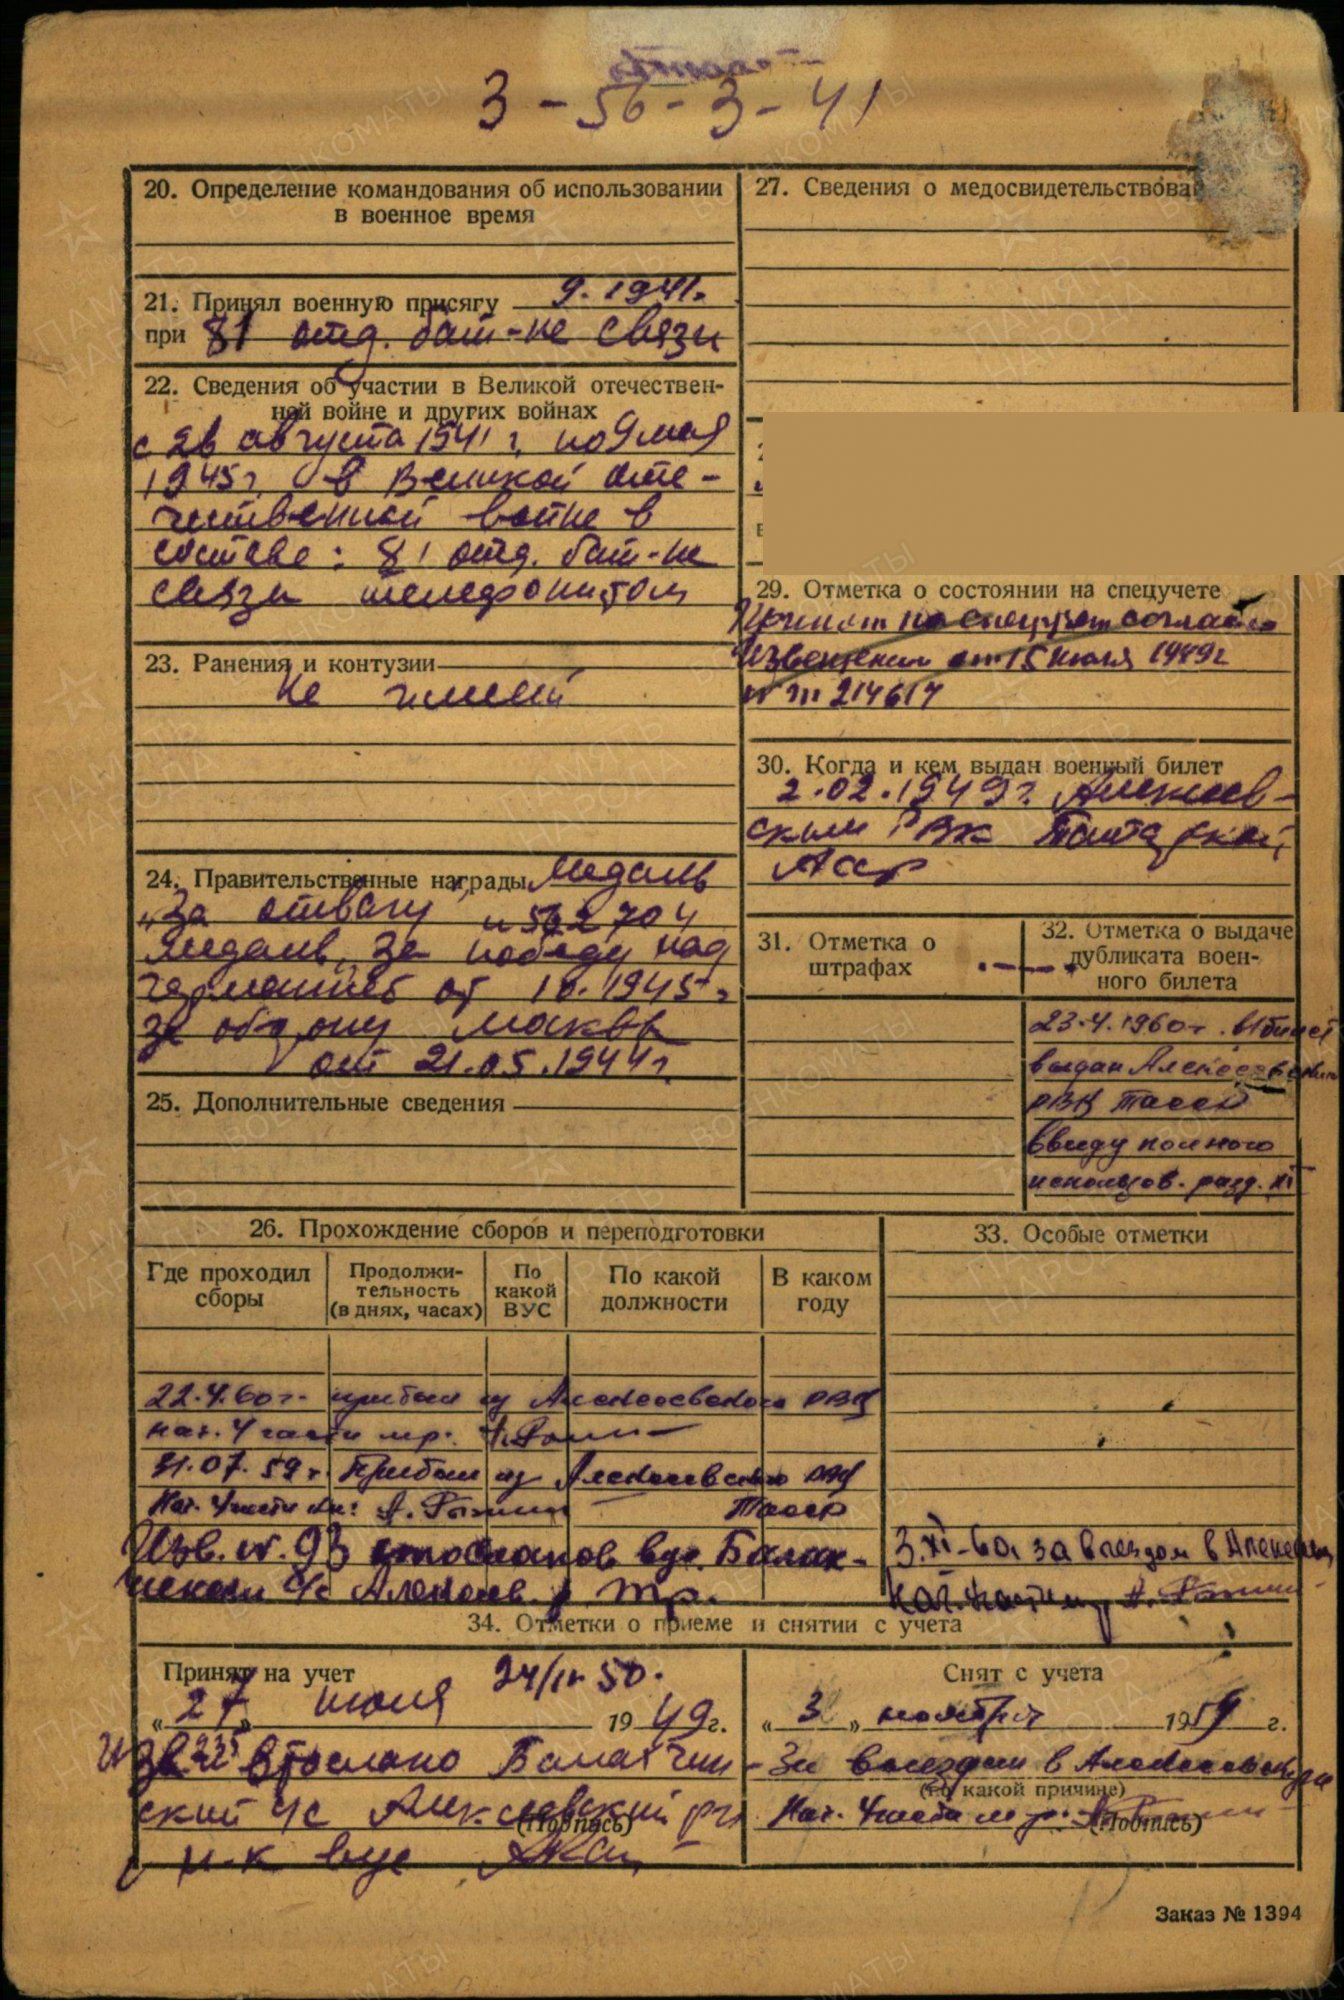 3 - 56 - 3 - 41
20. Определение командования об использовании
в военное время
21. Принял военную присягу 9. 1941.
при 81 отд. бат-не связи
22. Сведения об участии в Великой отечествен-
ной войне и других войнах
с 26 августа 1941 г. по 9 мая
1945 г. в Великой оте-
чественной войне в
составе: 81 отд. бат-не
связи телефонистом
23. Ранения и контузии
Не имеет
24. Правительственные награды Медаль
„За отвагу" н 562704
Медаль „За победу над
германией от 10.1945 г
за оборону Москвы
от 21.05.1944 г.
25. Дополнительные сведения
27. Сведения о медосвидетельствова
29. Отметка о состоянии на спецучете
Принят на спецучет согласно
Извещения от 15 июля 1949 г
214617
30. Когда и кем выдан военный билет
2.02.1949 г. Алексеев-
ским РВК Татарской
Асср
31. Отметка о
штрафах
32. Отметка о выдаче
дубликата воен-
ного билета
23.4.1960 г. в/билет
выдан Алексеевским
РВК Тасср
ввиду полного
использов. разд. XI
26. Прохождение сборов и переподготовки
Где проходил
сборы
Продолжи-
тельность
(в днях, часах)
По
какой
ВУС
По какой
должности
В каком
году
22.4.60 г. прибыл из Алексеевского РВК
нач. 4 части
31.07.59 г. Прибыл из Алексеевского РВК
Нач. 4 части А. Тасср
Изв. 93 отослано в вус. Балах-
чинский с/с Алексеев.
33. Особые отметки
3.XI-60г за выездом в Алексеев
Нач. 4 части
34. Отметки о приеме и снятии с учета
Принят на учет 24/II 50.
„27" июля 1949 г.
отослано Балахчин-
ский с/с Алексеевский
(Подпись)
н-к вус
Снят с учета
„3" ноября 1959 г.
За выездом в Алексеевский
(по какой причине)
Нач. 4 части
(Подпись)
Заказ № 1394
ПАМЯТЬ
НАРОДА
ВОЕНКОМАТЫ